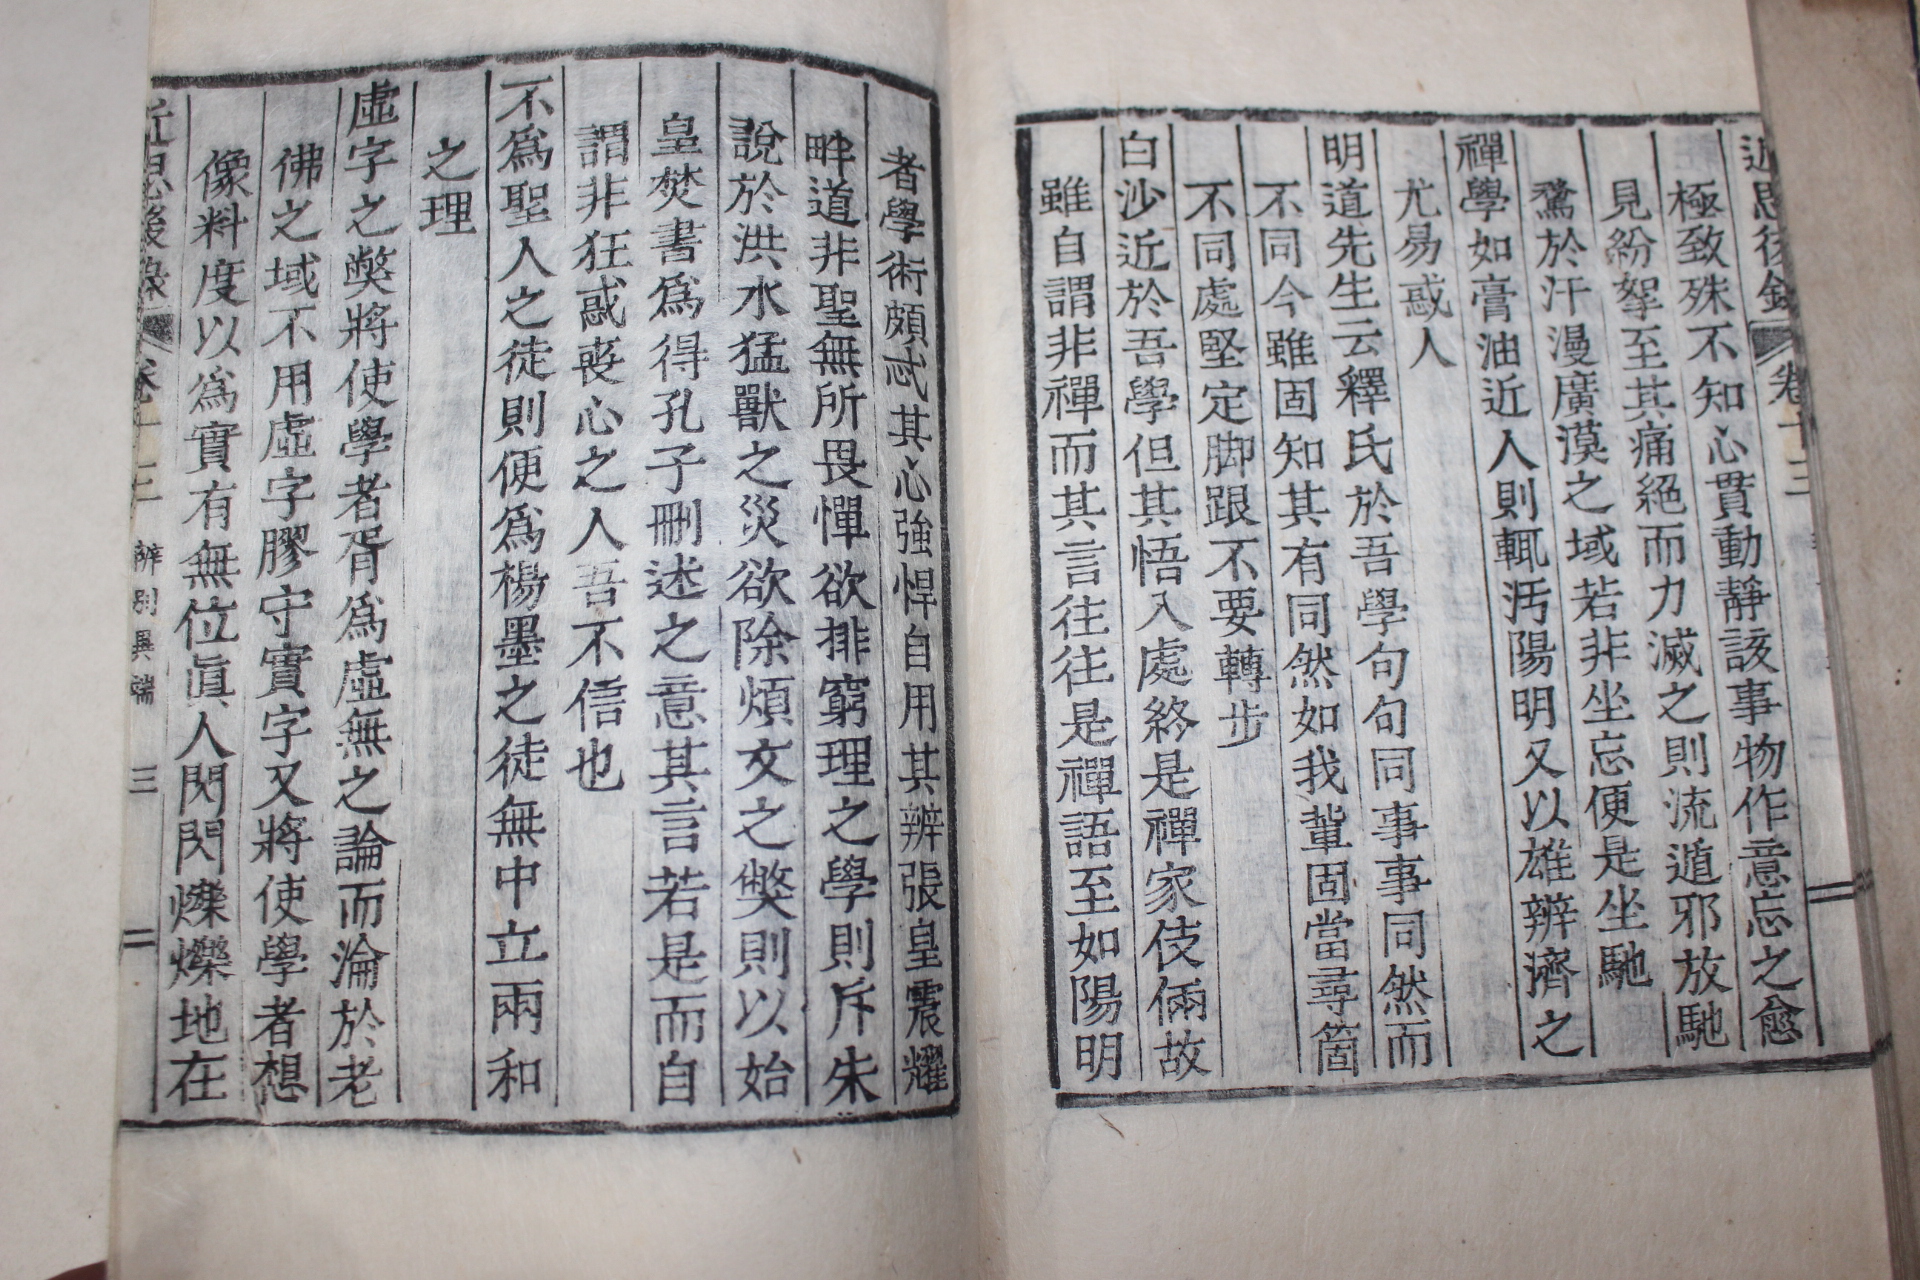 近思後錄 卷十三
極致殊不知心貫動靜該事物作意忘之愈
見紛挐至其痛絕而力滅之則流遁邪放馳
騖於汗漫廣漠之域若非坐忘便是坐馳
禪學如膏油近人則輒汚陽明又以雄辨濟之
尤易惑人
明道先生云釋氏於吾學句句同事事同然而
不同今雖固知其有同然如我輩固當尋箇
不同處堅定脚跟不要轉步
白沙近於吾學但其悟入處終是禪家伎倆故
雖自謂非禪而其言往往是禪語至如陽明
者學術頗忒其心強悍自用其辨張皇震耀
畔道非聖無所畏憚欲排窮理之學則斥朱
說於洪水猛獸之災欲除煩文之弊則以始
皇焚書爲得孔子刪述之意其言若是而自
謂非狂惑喪心之人吾不信也
不爲聖人之徒則便爲楊墨之徒無中立兩和
之理
虛字之弊將使學者胥爲虛無之論而淪於老
佛之域不用虛字膠守實字又將使學者想
像料度以爲實有無位眞人閃閃爍爍地在
近思後錄 卷十三 辨別異端 三